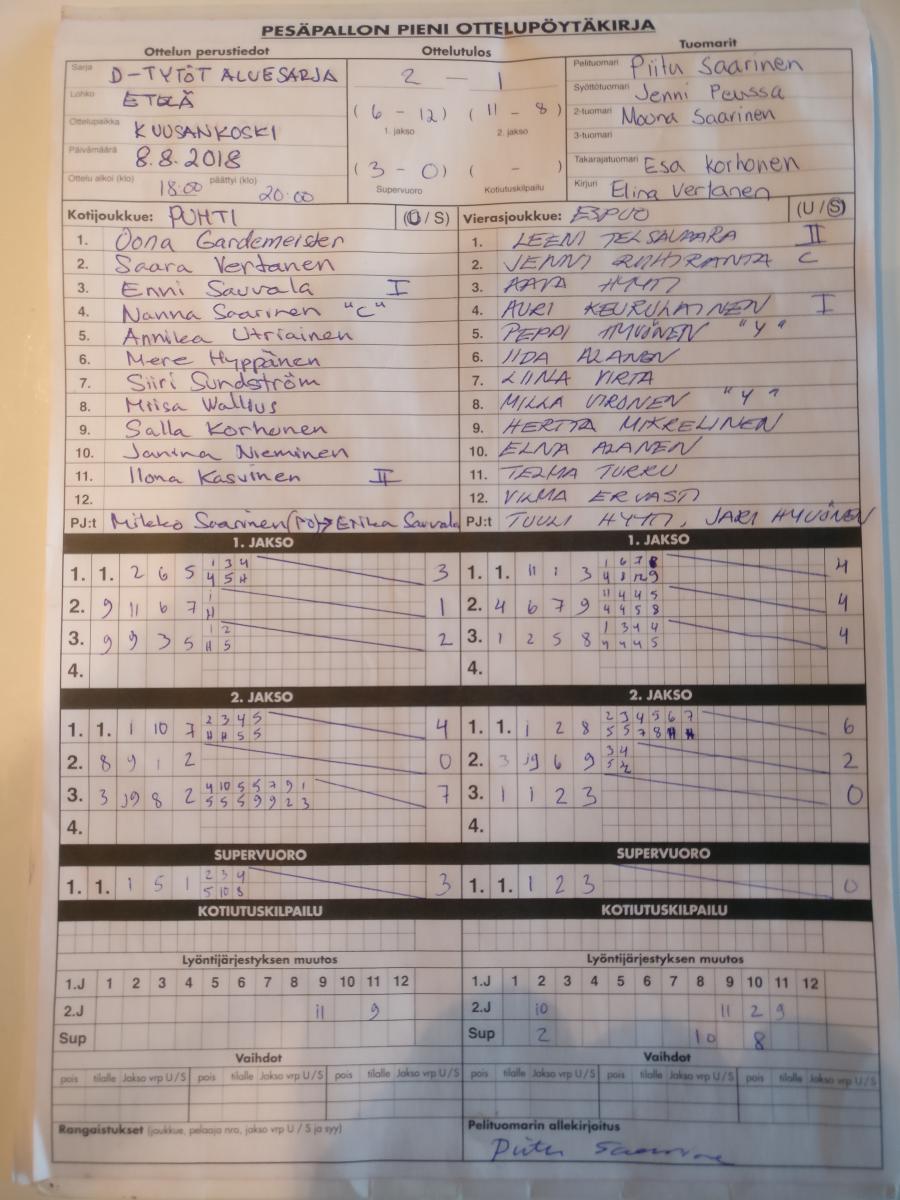 PESÄPALLON PIENI OTTELUPÖYTÄKIRJA
Ottelun perustiedot Ottelutulos Tuomarit
Sarja D-TYTÖT ALUESARJA
Lohko ETELÄ
Ottelupaikka KUUSANKOSKI
Päivämäärä 8.8.2018
Ottelu alkoi (klo) 18:00 päättyi (klo) 20:00
2 - 1
(6 - 12) (11 - 8)
1. jakso 2. jakso
(3 - 0) ( - )
Supervuoro Kotiutuskilpailu
Pelituomari Piitu Saarinen
Syöttötuomari Jenni Peussa
2-tuomari Moona Saarinen
3-tuomari
Takarajatuomari Esa Korhonen
Kirjuri Elina Vertanen
Kotijoukkue: PUHTI (U/S)
1. Oona Gardemeister
2. Saara Vertanen
3. Enni Sauvala I
4. Nanna Saarinen "C"
5. Annika Utriainen
6. Mere Hyppänen
7. Siiri Sundström
8. Miisa Wallius
9. Salla Korhonen
10. Janina Nieminen
11. Ilona Kasvinen II
12.
PJ:t Mikko Saarinen (PJ) → Erika Sauvala
Vierasjoukkue: ESPOO (U/S)
1. LEENI II
2. JENNI C
3. AAVA HYTTI
4. AURI KEURULAINEN I
5. PEPPI "Y"
6. IIDA ALANEN
7. LIINA VIRTA
8. MILLA "Y"
9. HERTTA
10. ALANEN
11. TELMA TURKU
12. VILMA ERVASTI
PJ:t TUULI HYTTI, JARI HYVÖNEN
1. JAKSO
1. 1. 2 6 5 1 3 4 3
4 5 H
2. 9 11 6 7 1 1
H
3. 9 9 3 5 1 2 2
H 5
4.
1. JAKSO
1. 1. 11 1 3 1 6 7 8 4
4 8 12 9
2. 4 6 7 9 11 4 4 5 4
4 4 5 8
3. 1 2 5 8 1 3 4 4 4
4 4 4 5
4.
2. JAKSO
1. 1. 1 10 7 2 3 4 5 4
H H 5 5
2. 8 9 1 2 0
3. 3 J9 8 2 4 10 5 5 7 9 1 7
5 5 5 9 9 2 3
4.
2. JAKSO
1. 1. 1 2 8 2 3 4 5 6 7 6
5 5 7 8 H H
2. 3 J9 6 9 3 4 2
5
3. 1 1 2 3 0
4.
SUPERVUORO
1. 1. 1 5 1 2 3 4 3
5 10 8
SUPERVUORO
1. 1. 1 2 3 0
KOTIUTUSKILPAILU
KOTIUTUSKILPAILU
Lyöntijärjestyksen muutos
1.J 1 2 3 4 5 6 7 8 9 10 11 12
2.J 11 9
Sup
Lyöntijärjestyksen muutos
1.J 1 2 3 4 5 6 7 8 9 10 11 12
2.J 10 11 2 9
Sup 2 10 8
Vaihdot
pois tilalle Jakso vrp U/S pois tilalle Jakso vrp U/S pois tilalle Jakso vrp U/S
Vaihdot
pois tilalle Jakso vrp U/S pois tilalle Jakso vrp U/S pois tilalle Jakso vrp U/S
Rangaistukset (joukkue, pelaaja nro, jakso vrp U / S ja syy)
Pelituomarin allekirjoitus